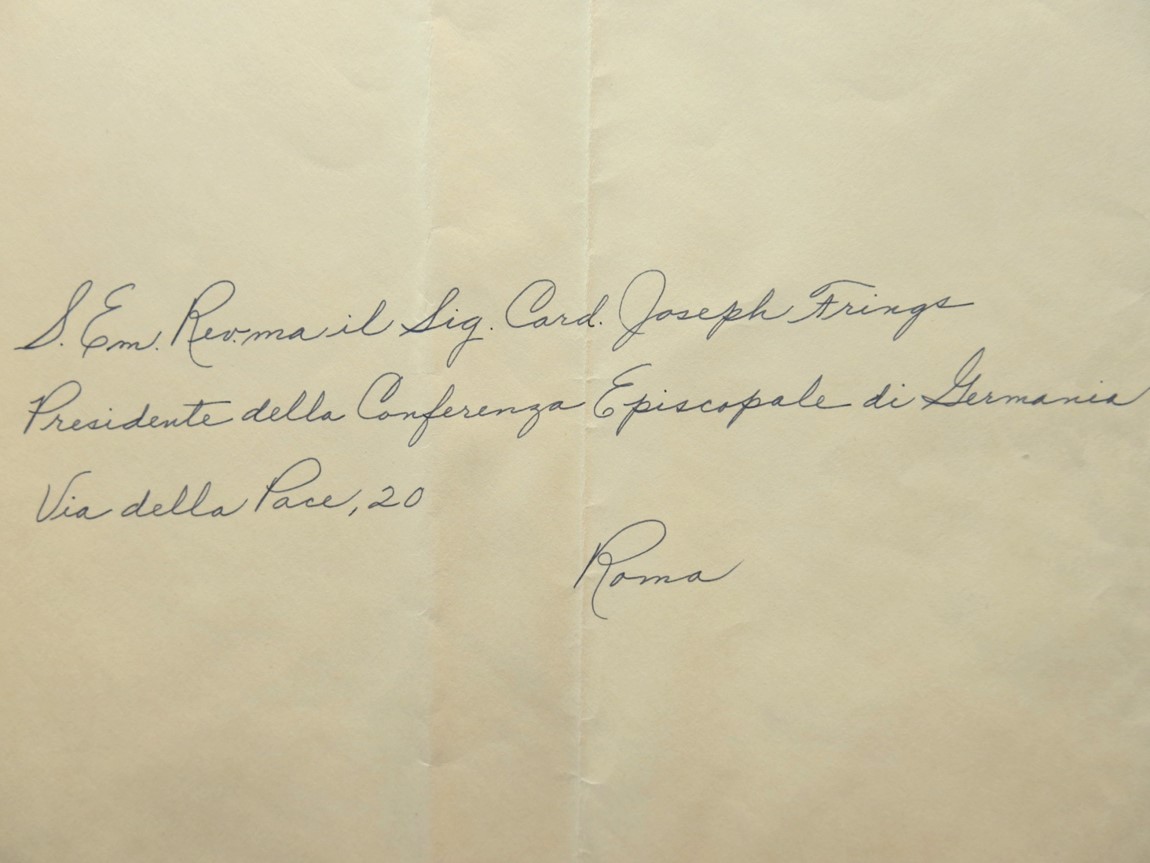 S. Em. Rev.ma il Sig. Card. Joseph Frings
Presidente della Conferenza Episcopale di Germania
Via della Pace, 20
Roma